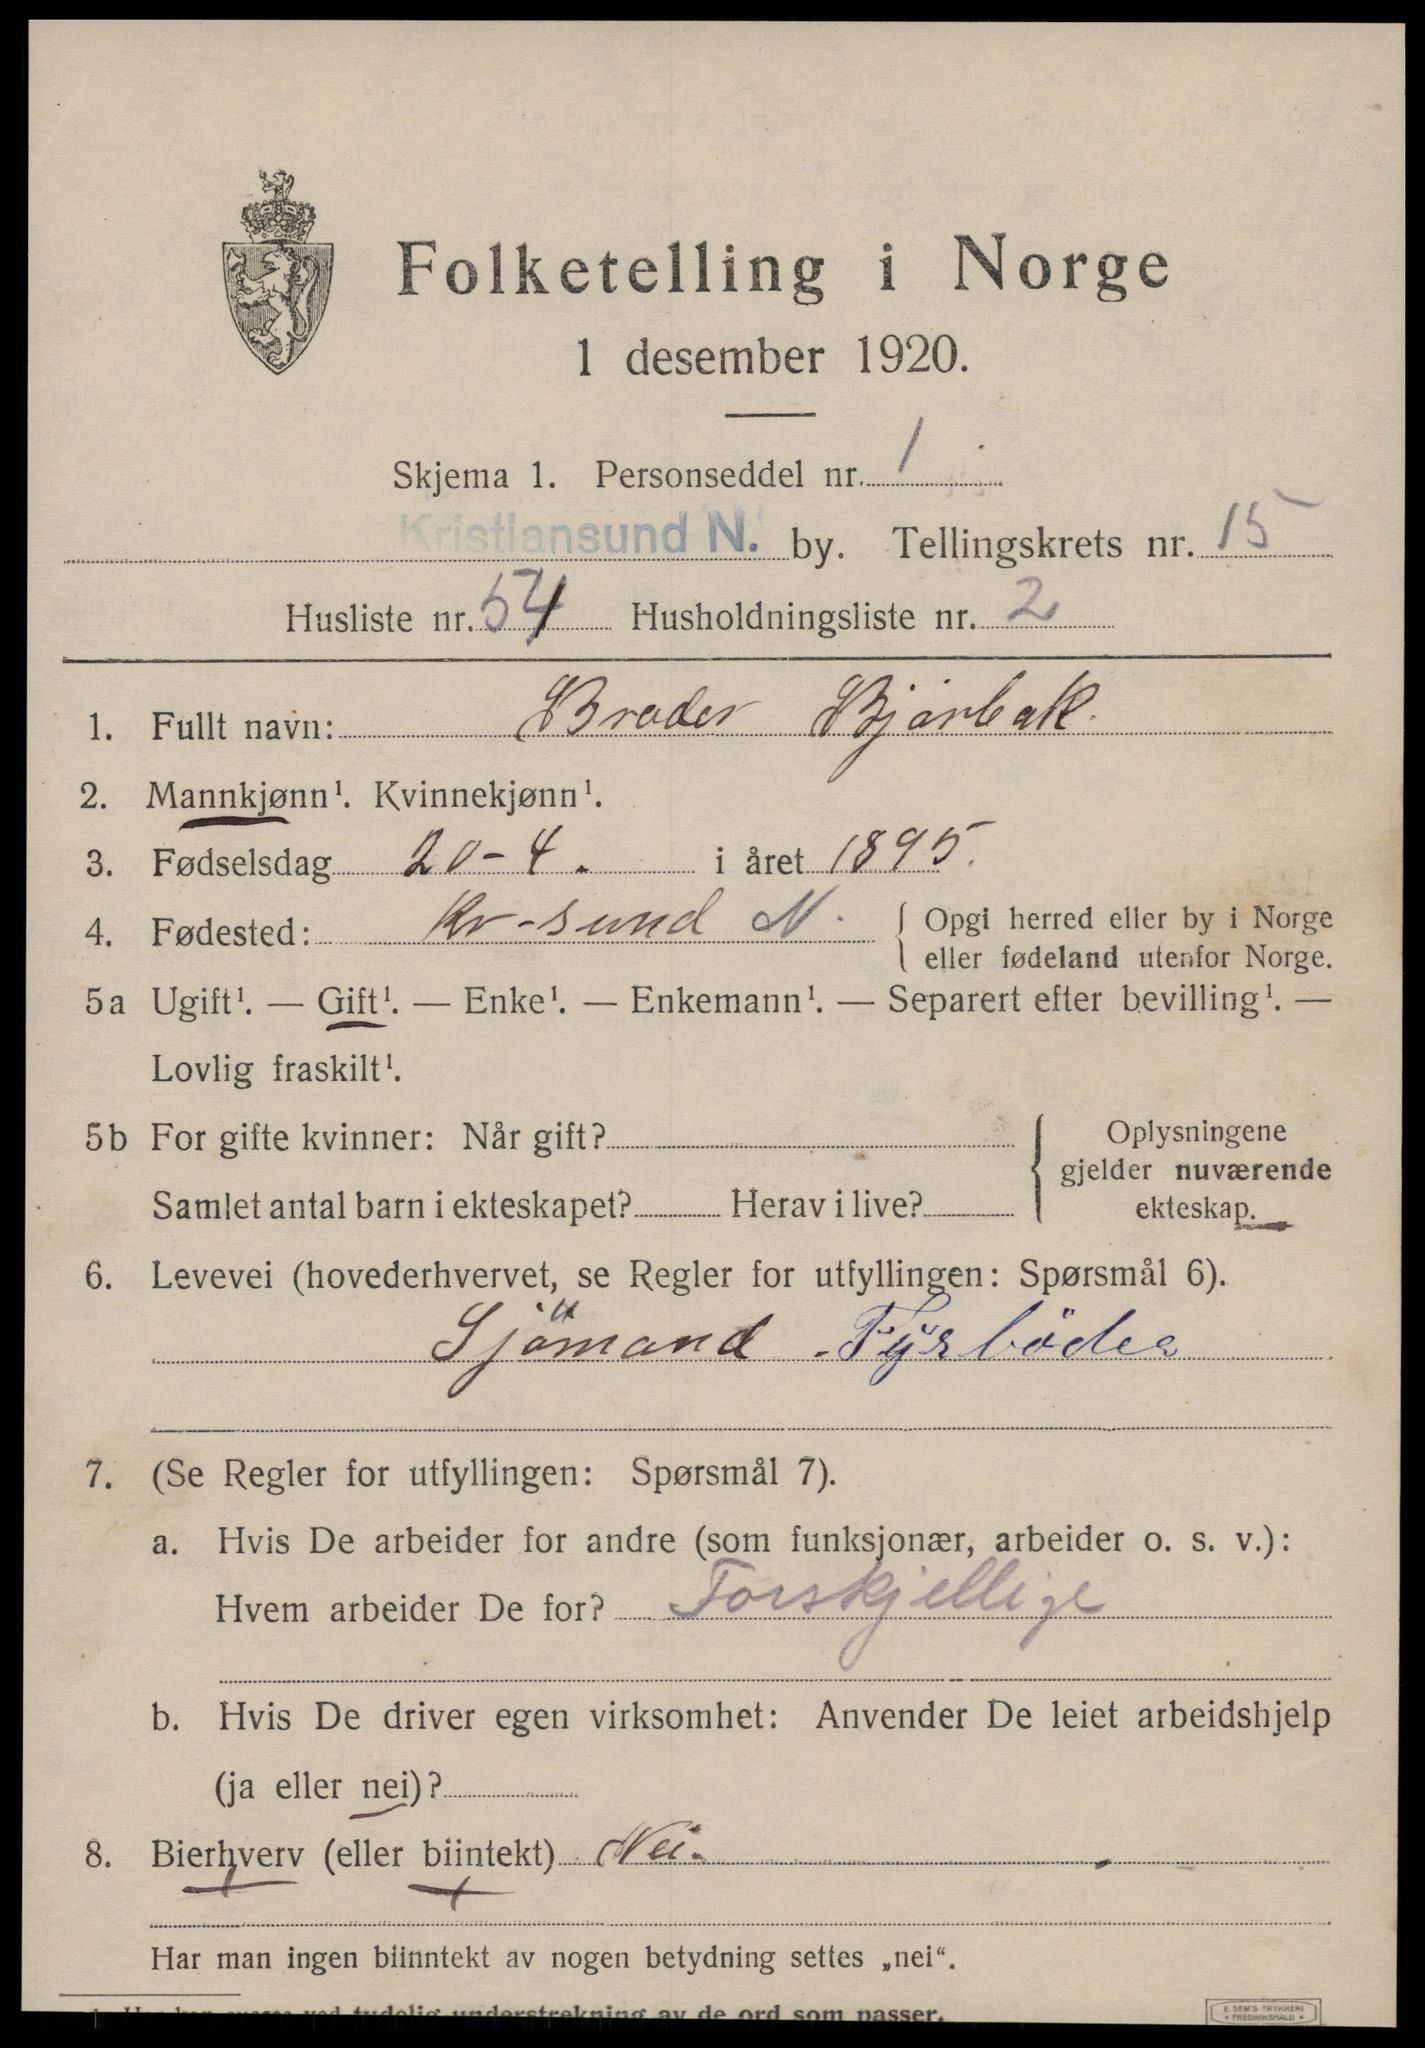 Folketelling i Norge
1 desember 1920.
Skjema 1. Personseddel nr. 1
Kristiansund N. by. Tellingskrets nr. 15
Husliste nr. 54 Husholdningsliste nr. 2
1. Fullt navn: Broder Bjørbak.
2. Mannkjønn¹. Kvinnekjønn¹.
3. Fødselsdag 20-4. i året 1895.
4. Fødested: Kr-sund N. { Opgi herred eller by i Norge
eller fødeland utenfor Norge.
5a Ugift¹. — Gift¹. — Enke¹. — Enkemann¹. — Separert efter bevilling¹. —
Lovlig fraskilt¹.
5b For gifte kvinner: Når gift? { Oplysningene
gjelder nuværende
Samlet antal barn i ekteskapet? Herav i live? ekteskap.
6. Levevei (hovederhvervet, se Regler for utfyllingen: Spørsmål 6).
Sjömand - Fyrböder
7. (Se Regler for utfyllingen: Spørsmål 7).
a. Hvis De arbeider for andre (som funksjonær, arbeider o. s. v.):
Hvem arbeider De for? Forskjellige
b. Hvis De driver egen virksomhet: Anvender De leiet arbeidshjelp
(ja eller nei)?
8. Bierhverv (eller biintekt) Nei.
Har man ingen biinntekt av nogen betydning settes „nei“.
tydelig understrekning av de ord som passer.
E. SEM'S TRYKKERI
FREDRIKSHALD